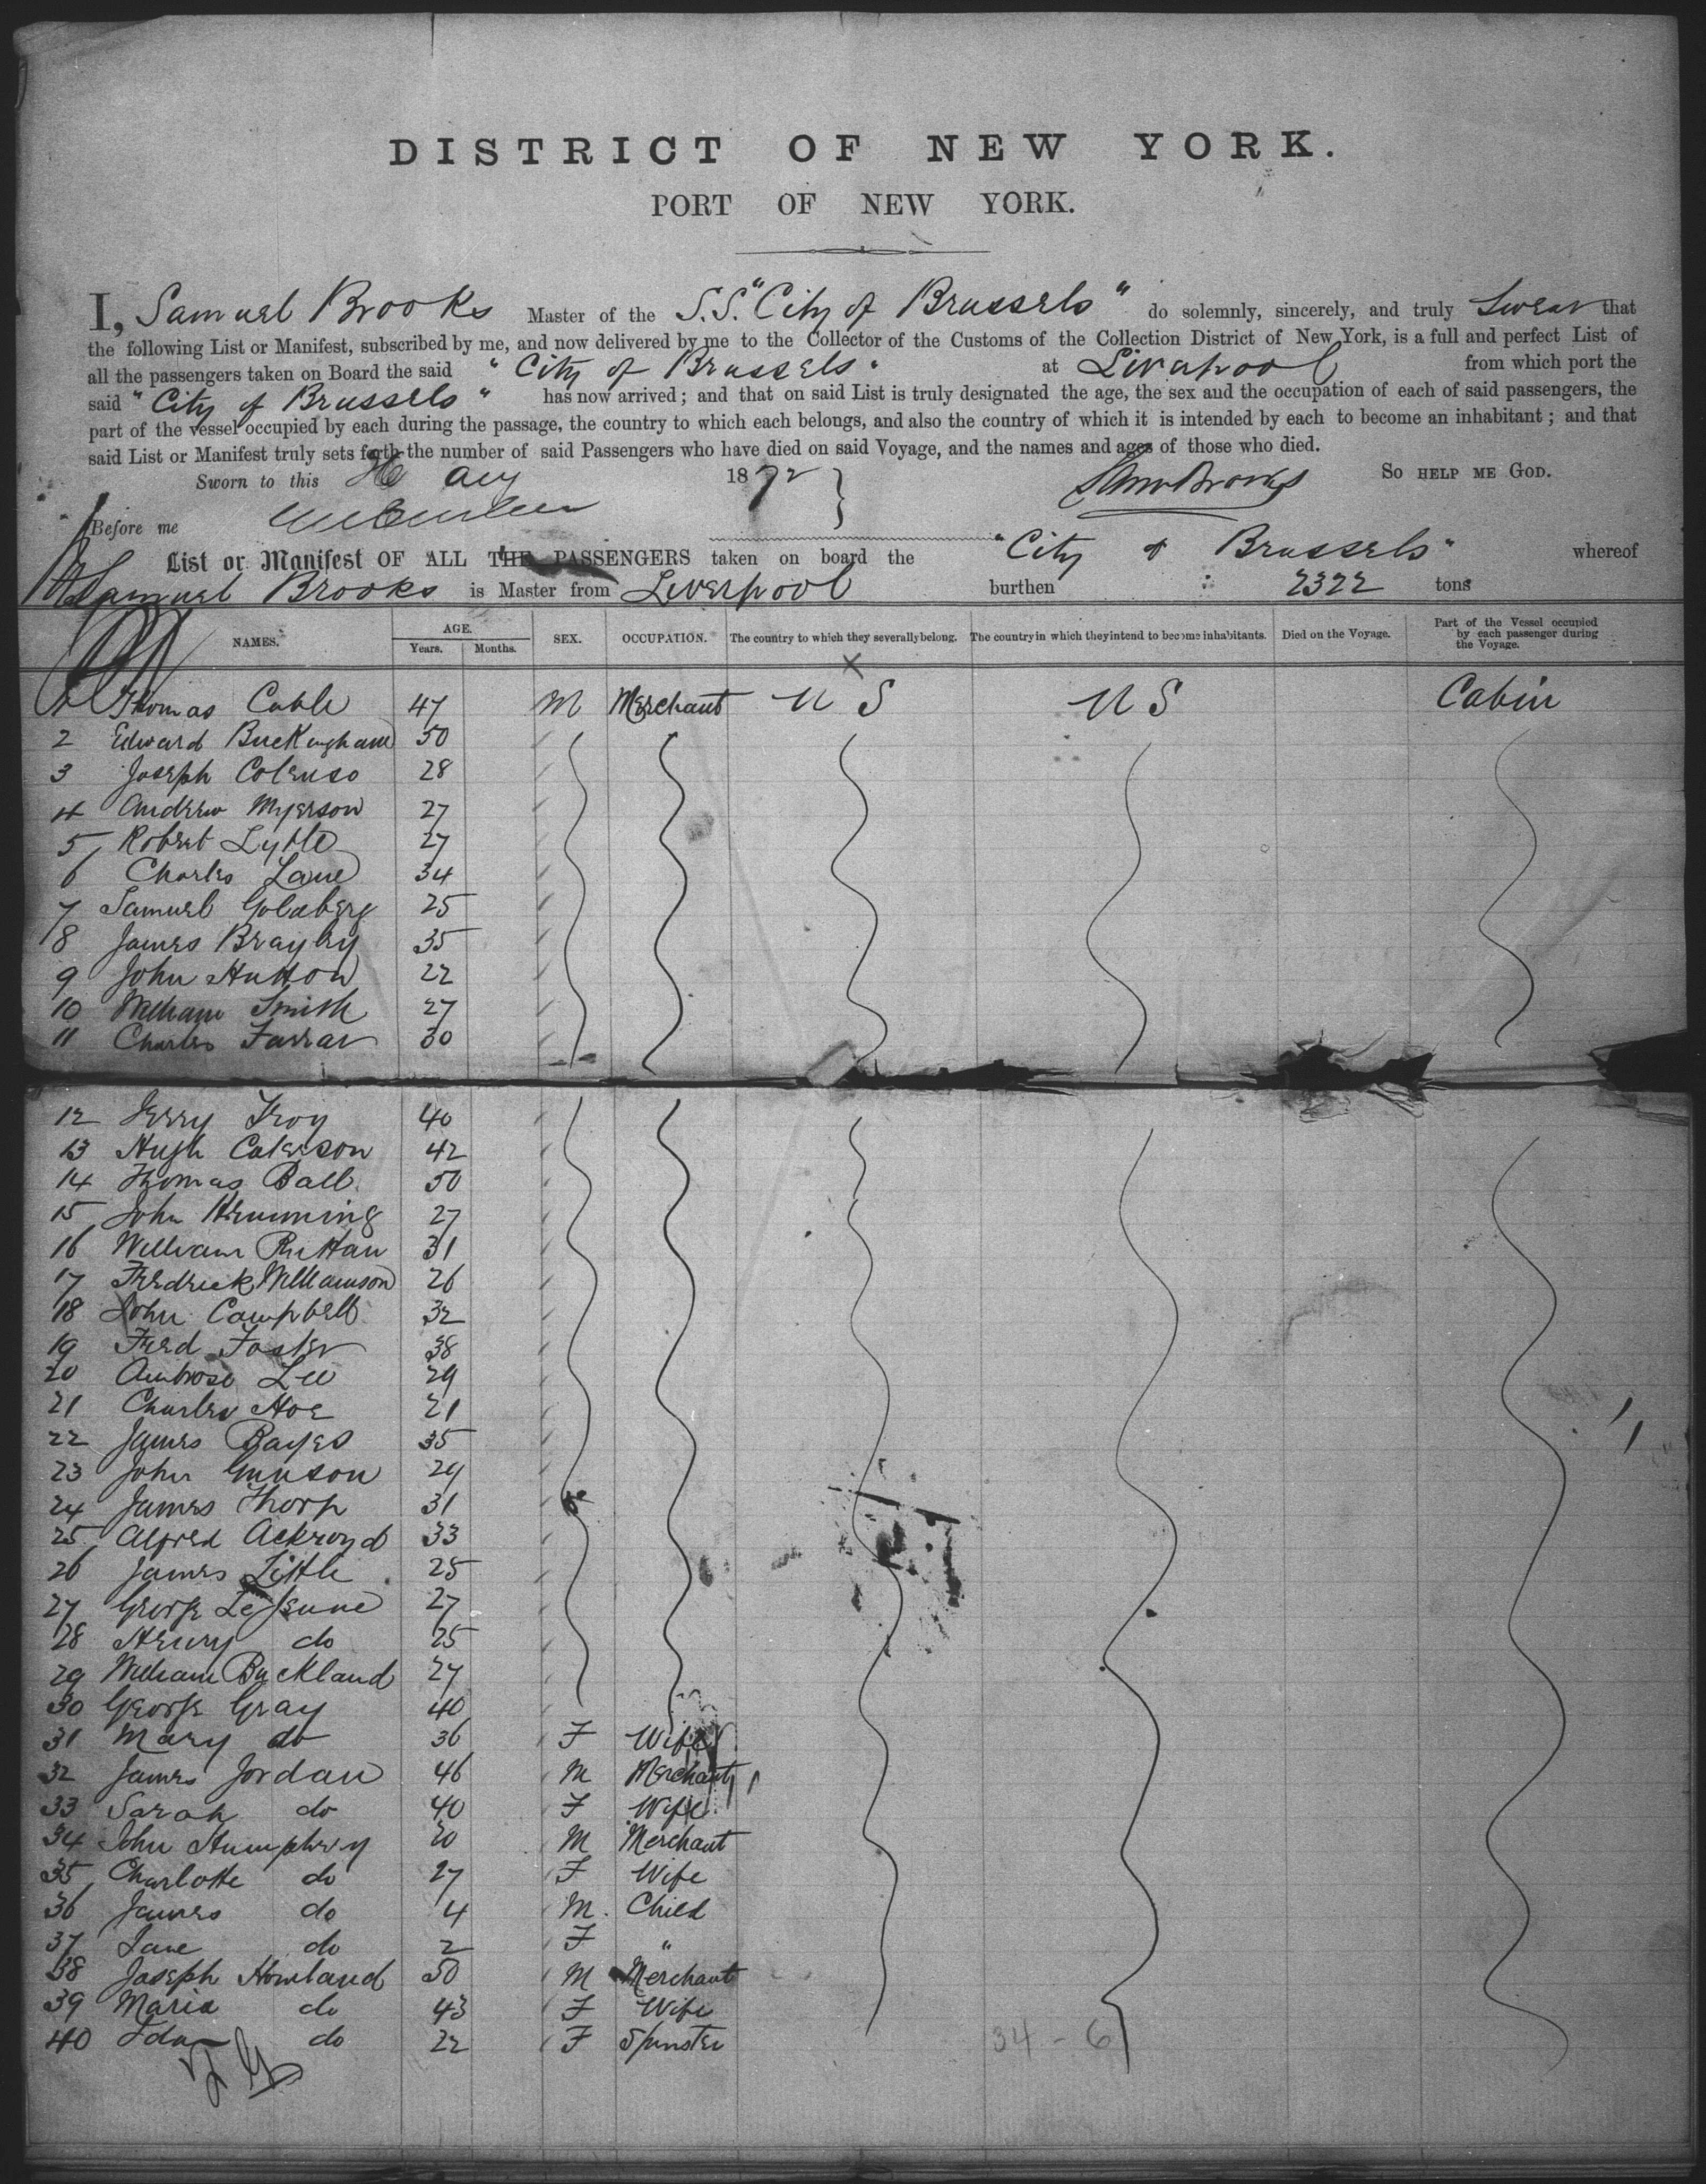 DISTRICT OF NEW YORK.
PORT OF NEW YORK.
I, Samuel Brooks Master of the S.S. "City of Brussels" do solemnly, sincerely, and truly Swear that
the following List or Manifest, subscribed by me, and now delivered by me to the Collector of the Customs of the Collection District of New York, is a full and perfect List of
all the passengers taken on Board the said "City of Brussels" at Liverpool from which port the
said "City of Brussels" has now arrived; and that on said List is truly designated the age, the sex and the occupation of each of said passengers, the
part of the vessel occupied by each during the passage, the country to which each belongs, and also the country of which it is intended by each to become an inhabitant; and that
said List or Manifest truly sets forth the number of said Passengers who have died on said Voyage, and the names and ages of those who died.
Sworn to this Aug 1872 Saml Brooks SO HELP ME GOD.
Before me
List or Manifest OF ALL THE PASSENGERS taken on board the "City of Brussels" whereof
Samuel Brooks is Master from Liverpool burthen 2322 tons
NAMES. AGE. Years. Months. SEX. OCCUPATION. The country to which they severally belong. The country in which they intend to become inhabitants. Died on the Voyage. Part of the Vessel occupied by each passenger during the Voyage.
1 Thomas Cable 47 M Merchant U S U S Cabin
2 Edward Buckingham 50
3 Joseph Colenso 28
4 Andrew Myerson 27
5 Robert Lytle 27
6 Charles Lane 34
7 Samuel Goldberg 25
8 James Brayley 35
9 John Hutton 22
10 William Smith 27
11 Charles Farrar 30
12 Jerry Troy 40
13 Hugh Caterson 42
14 Thomas Ball 50
15 John Hemming 27
16 William Rittan 31
17 Fredrick Williamson 26
18 John Campbell 32
19 Fred Foster 38
20 Ambrose Lee 29
21 Charles Hoe 21
22 James Bayes 35
23 John Gunson 29
24 James Thorp 31
25 Alfred Ackroyd 33
26 James Little 25
27 George LeJeune 27
28 Henry do 25
29 William Buckland 27
30 George Gray 40
31 Mary do 36 F Wife
32 James Jordan 46 M Merchant
33 Sarah do 40 F Wife
34 John Humphrey 30 M Merchant
35 Charlotte do 27 F Wife
36 James do 4 M Child
37 Jane do 2 F "
38 Joseph Howland 50 M Merchant
39 Maria do 43 F Wife
40 Ida do 22 F Spinster
34 - 6